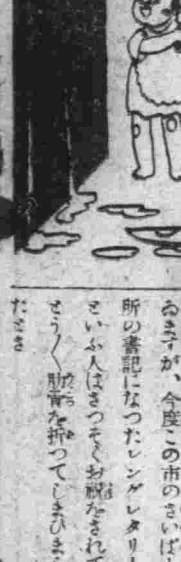 ゐますが、今度この市のさいば
所の書記になつたレングレタリー
といふ人はさつそくお祝をされて
とう〳〵肋骨を折つてしまひま
たとさ